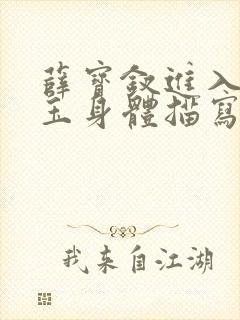 薛寶釵進入
玉身體描寫
我来自江湖